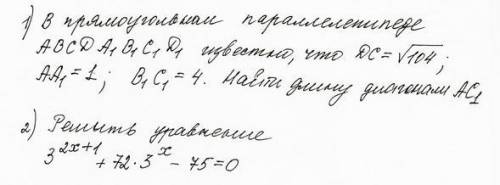 1) В прямоугольном параллелепипеде
ABCDA₁B₁C₁D₁ известно, что DC=√104;
AA₁=1; B₁C₁=4. Найти длину диагонали AC₁
2) Решить уравнение
3²ˣ⁺¹ + 72·3ˣ - 75=0